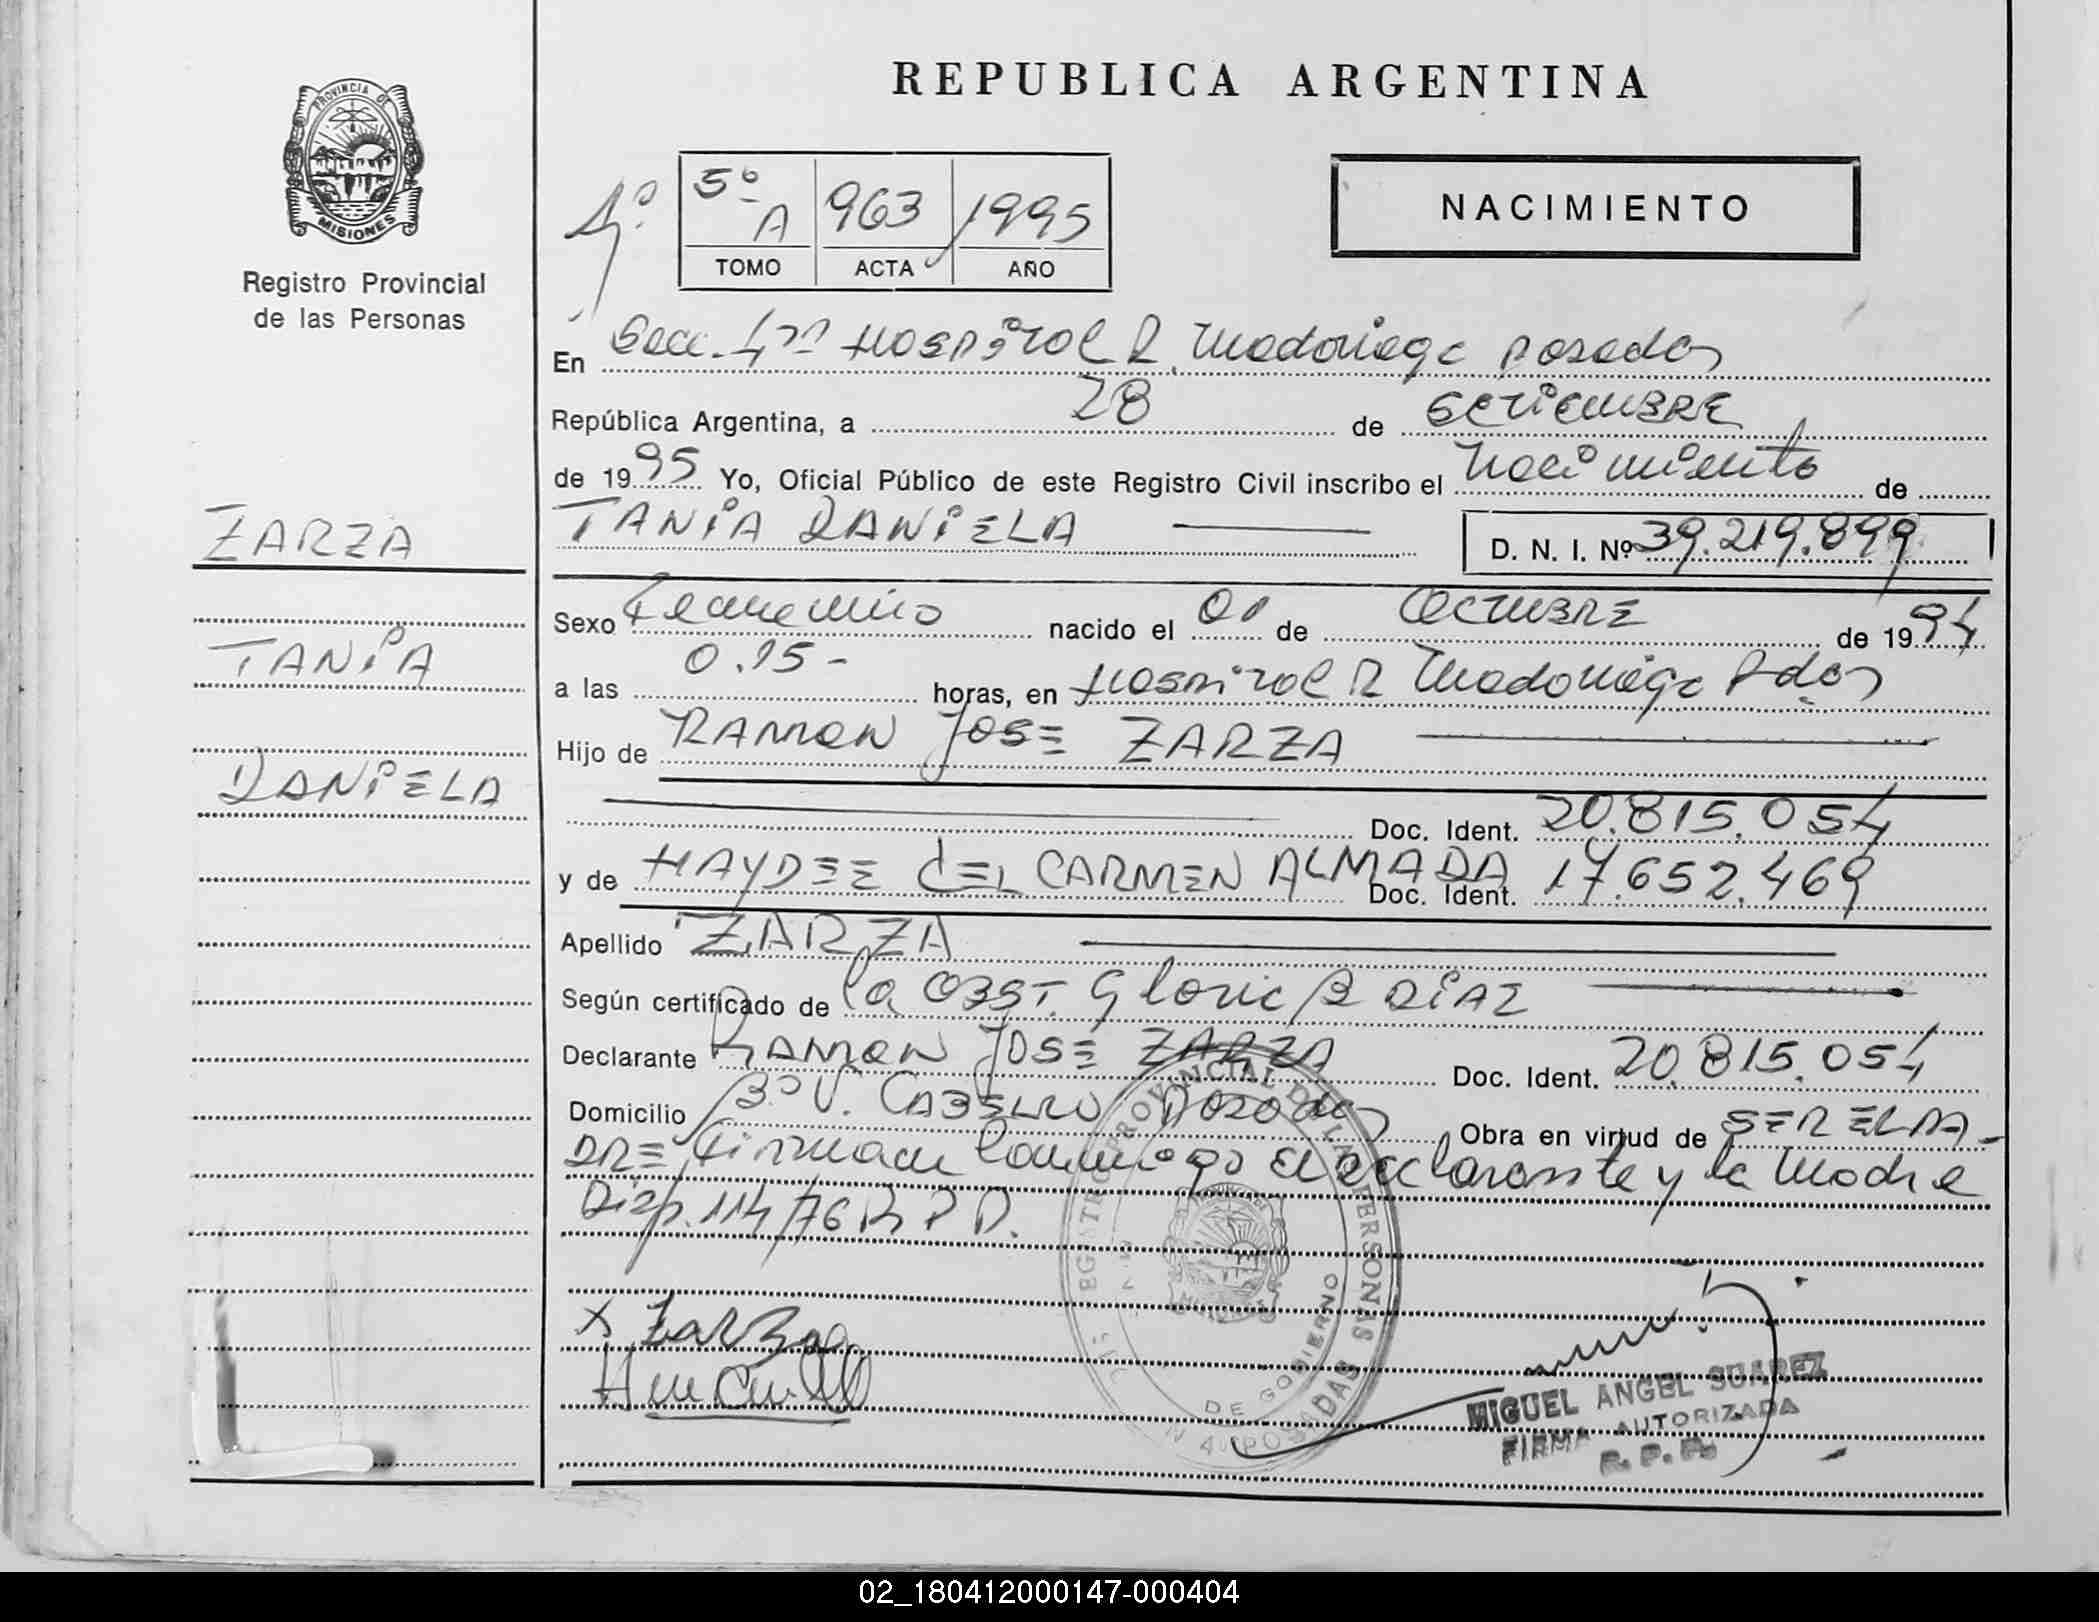 PROVINCIA DE
MISIONES
Registro Provincial
de las Personas
ZARZA
TANIA
DANIELA
REPUBLICA ARGENTINA
4º
5º A 963 1995
TOMO ACTA AÑO
NACIMIENTO
En Secc. 4ta Hospital R. Madariaga Posadas
República Argentina, a 28 de SETIEMBRE
de 1995 Yo, Oficial Público de este Registro Civil inscribo el Nacimiento de
TANIA DANIELA D. N. I. Nº 39.219.899
Sexo Femenino nacido el 01 de OCTUBRE de 1994
a las 0.15- horas, en Hospital R Madariaga Pdas
Hijo de RAMON JOSE ZARZA
Doc. Ident. 20.815.054
y de HAYDEE del CARMEN ALMADA Doc. Ident. 17.652.469
Apellido ZARZA
Según certificado de la OBST. Gloria B DIAZ
Declarante RAMON JOSE ZARZA Doc. Ident. 20.815.054
Domicilio Bº V. CABELLO Posadas Obra en virtud de SER EL PA-
DRE, Firman conmigo el declarante y la Madre
Disp. 114/76 R P P.
x Zarza
REGISTRO PROVINCIAL DE LAS PERSONAS
DE GOBIERNO
POSADAS
MISIONES
MIGUEL ANGEL SUAREZ
FIRMA AUTORIZADA
R. P. P.
02_180412000147-000404